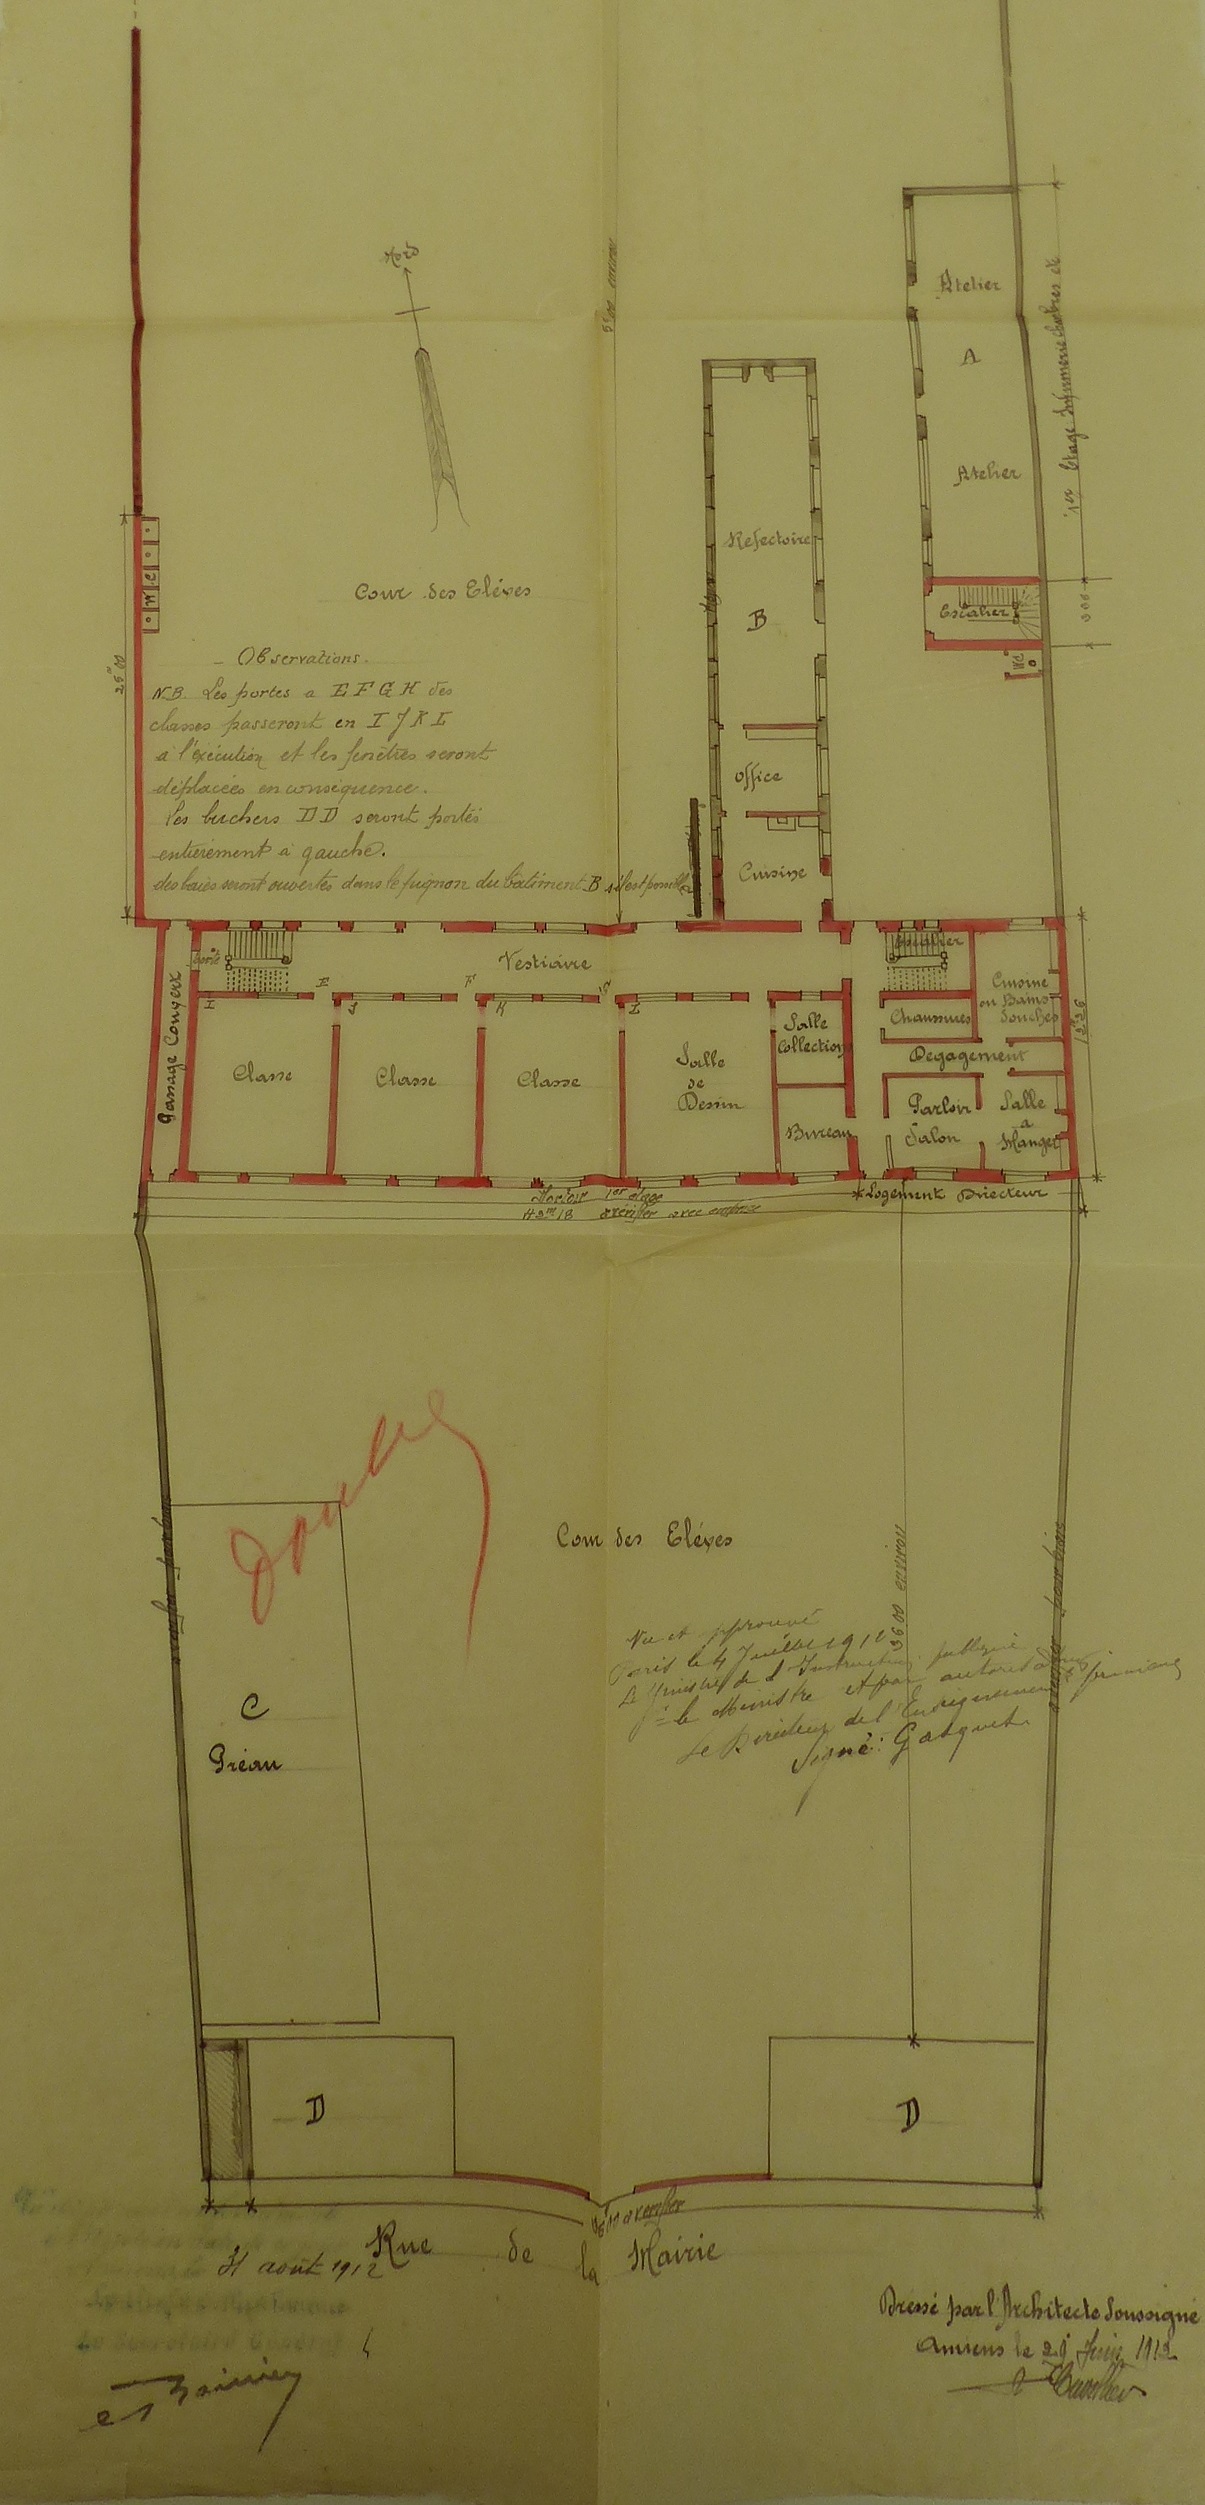 Nord
5 00 environ
Atelier
A
Atelier
1er Etage Infirmerie chambres de
Escalier
3 00
WC
Refectoire
B
Office
Cuisine
Cour des Eléves
W C
25m00
Observations.
N.B. Les portes a E F G H des
classes passeront en I J K L
a l'exécution et les fenêtres seront
déplacées en conséquence.
Les buchers D D seront portés
entièrement à gauche.
des baies seront ouvertes dans le pignon du bâtiment B s'il est possible
Passage Couvert
Vestiaire
E
F
I
J
K
L
Classe
Classe
Classe
Salle
de
Dessin
Salle
Collection
Bureau
Escalier
Cuisine
ou Bains
Douches
Chaussures
Degagement
Parloir
Salon
Salle
a
Manger
12m26
Dortoir 1er étage
42m18 à vérifier avec emprise
Logement Directeur
Double
Cour des Eléves
36 00 environ
C
Préau
Vu et approuvé
Paris le 4 Juillet 1912
Le Ministre de l'Instruction publique
le Ministre et par autorisation
Le Directeur de l'Enseignement primaire
Signé: Gasquet
D
D
à vérifier
Rue de la Mairie
31 août 1912
Le Secrétaire Général
Dressé par l'Architecte Soussigné
Amiens le 29 Juin 1912